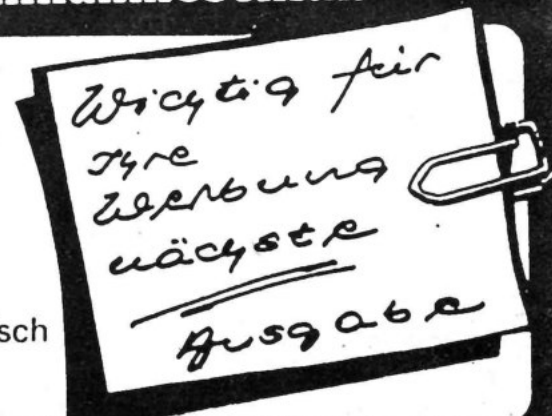 Wichtig für
Ihre
Werbung
nächste
Ausgabe
sch